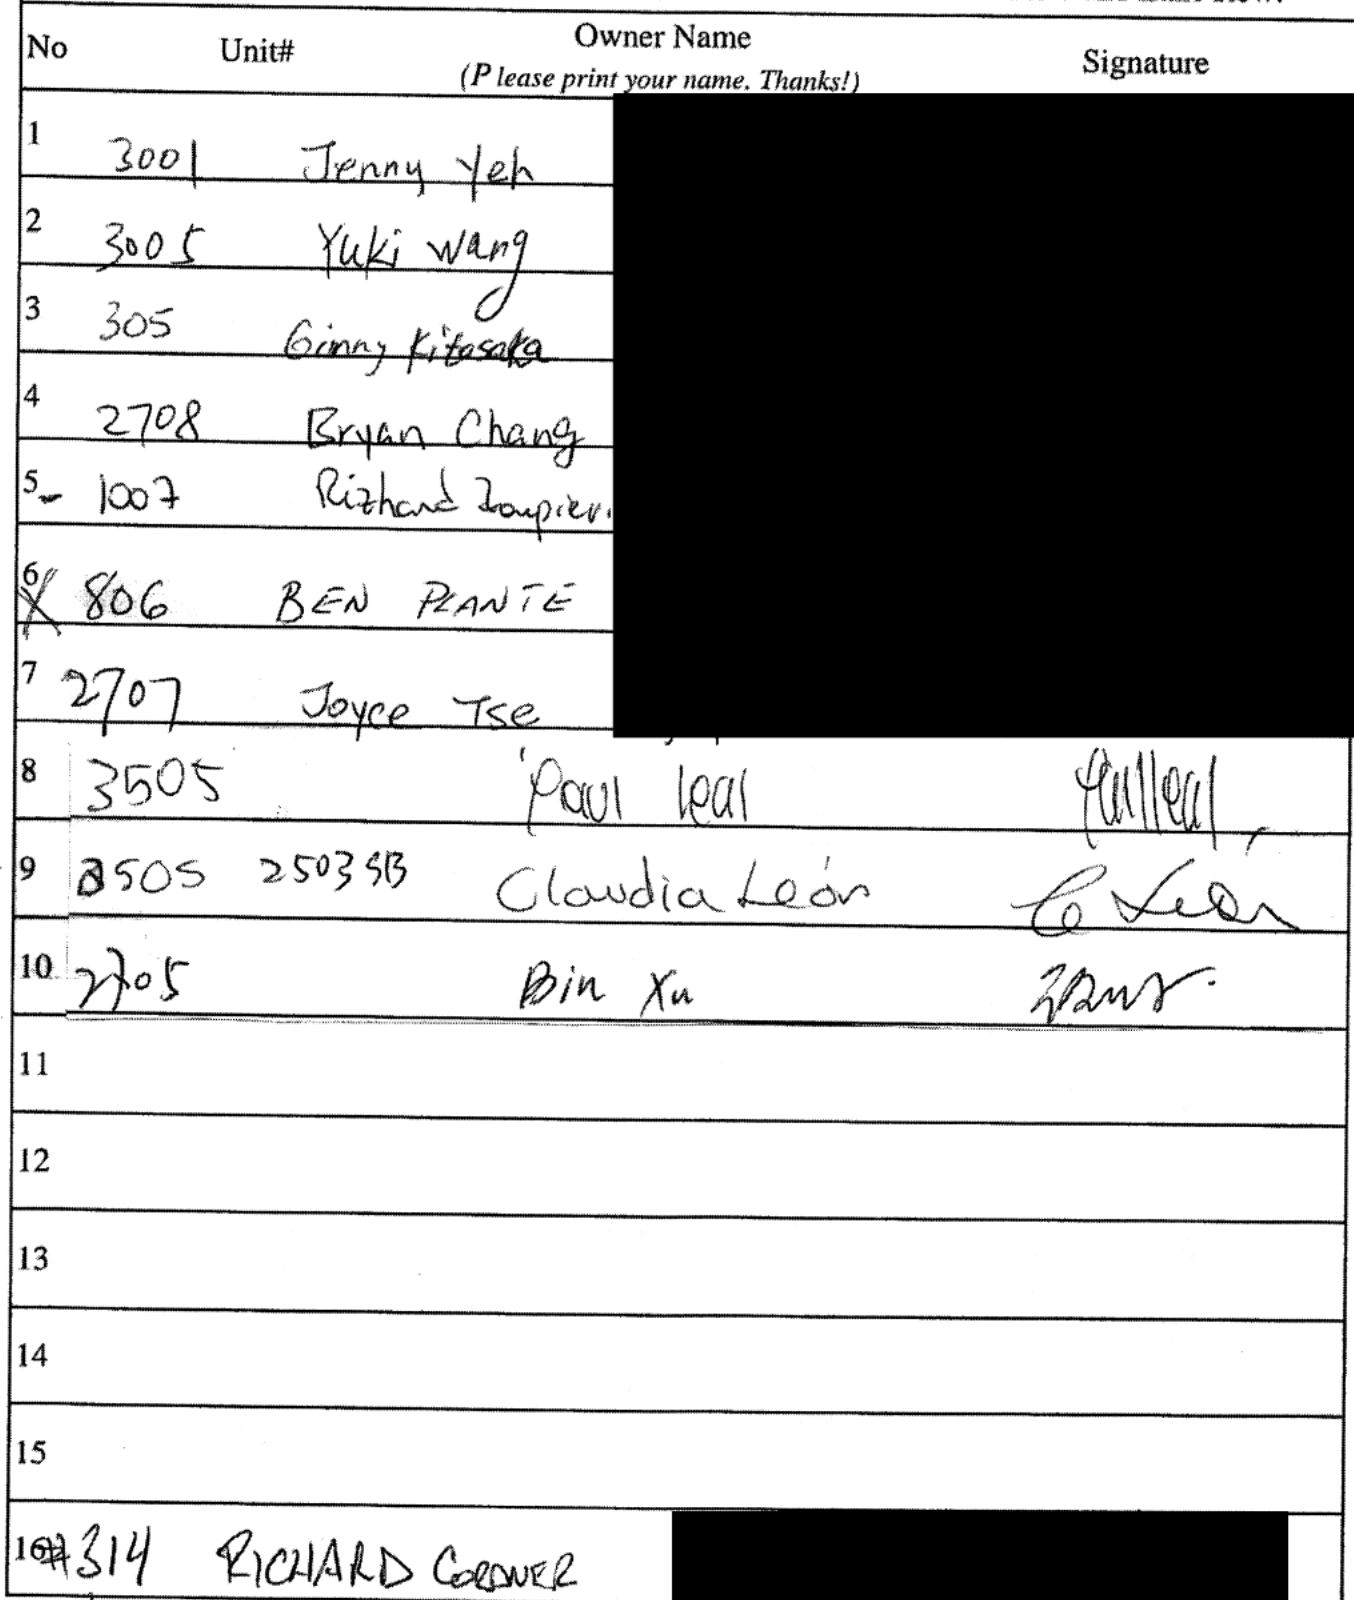 No Unit# Owner Name Signature
(Please print your name. Thanks!)
1 3001 Jenny Yeh
2 3005 Yuki Wang
3 305 Ginny Kitasaka
4 2708 Bryan Chang
5 1007
6 X 806 BEN PLANTE
7 2707 Joyce Tse
8 3505 Paul Leal Paul Leal
9 2505 2503 SB Claudia León C León
10 2705 Bin Xu
11
12
13
14
15
16 #314 RICHARD CORDNER